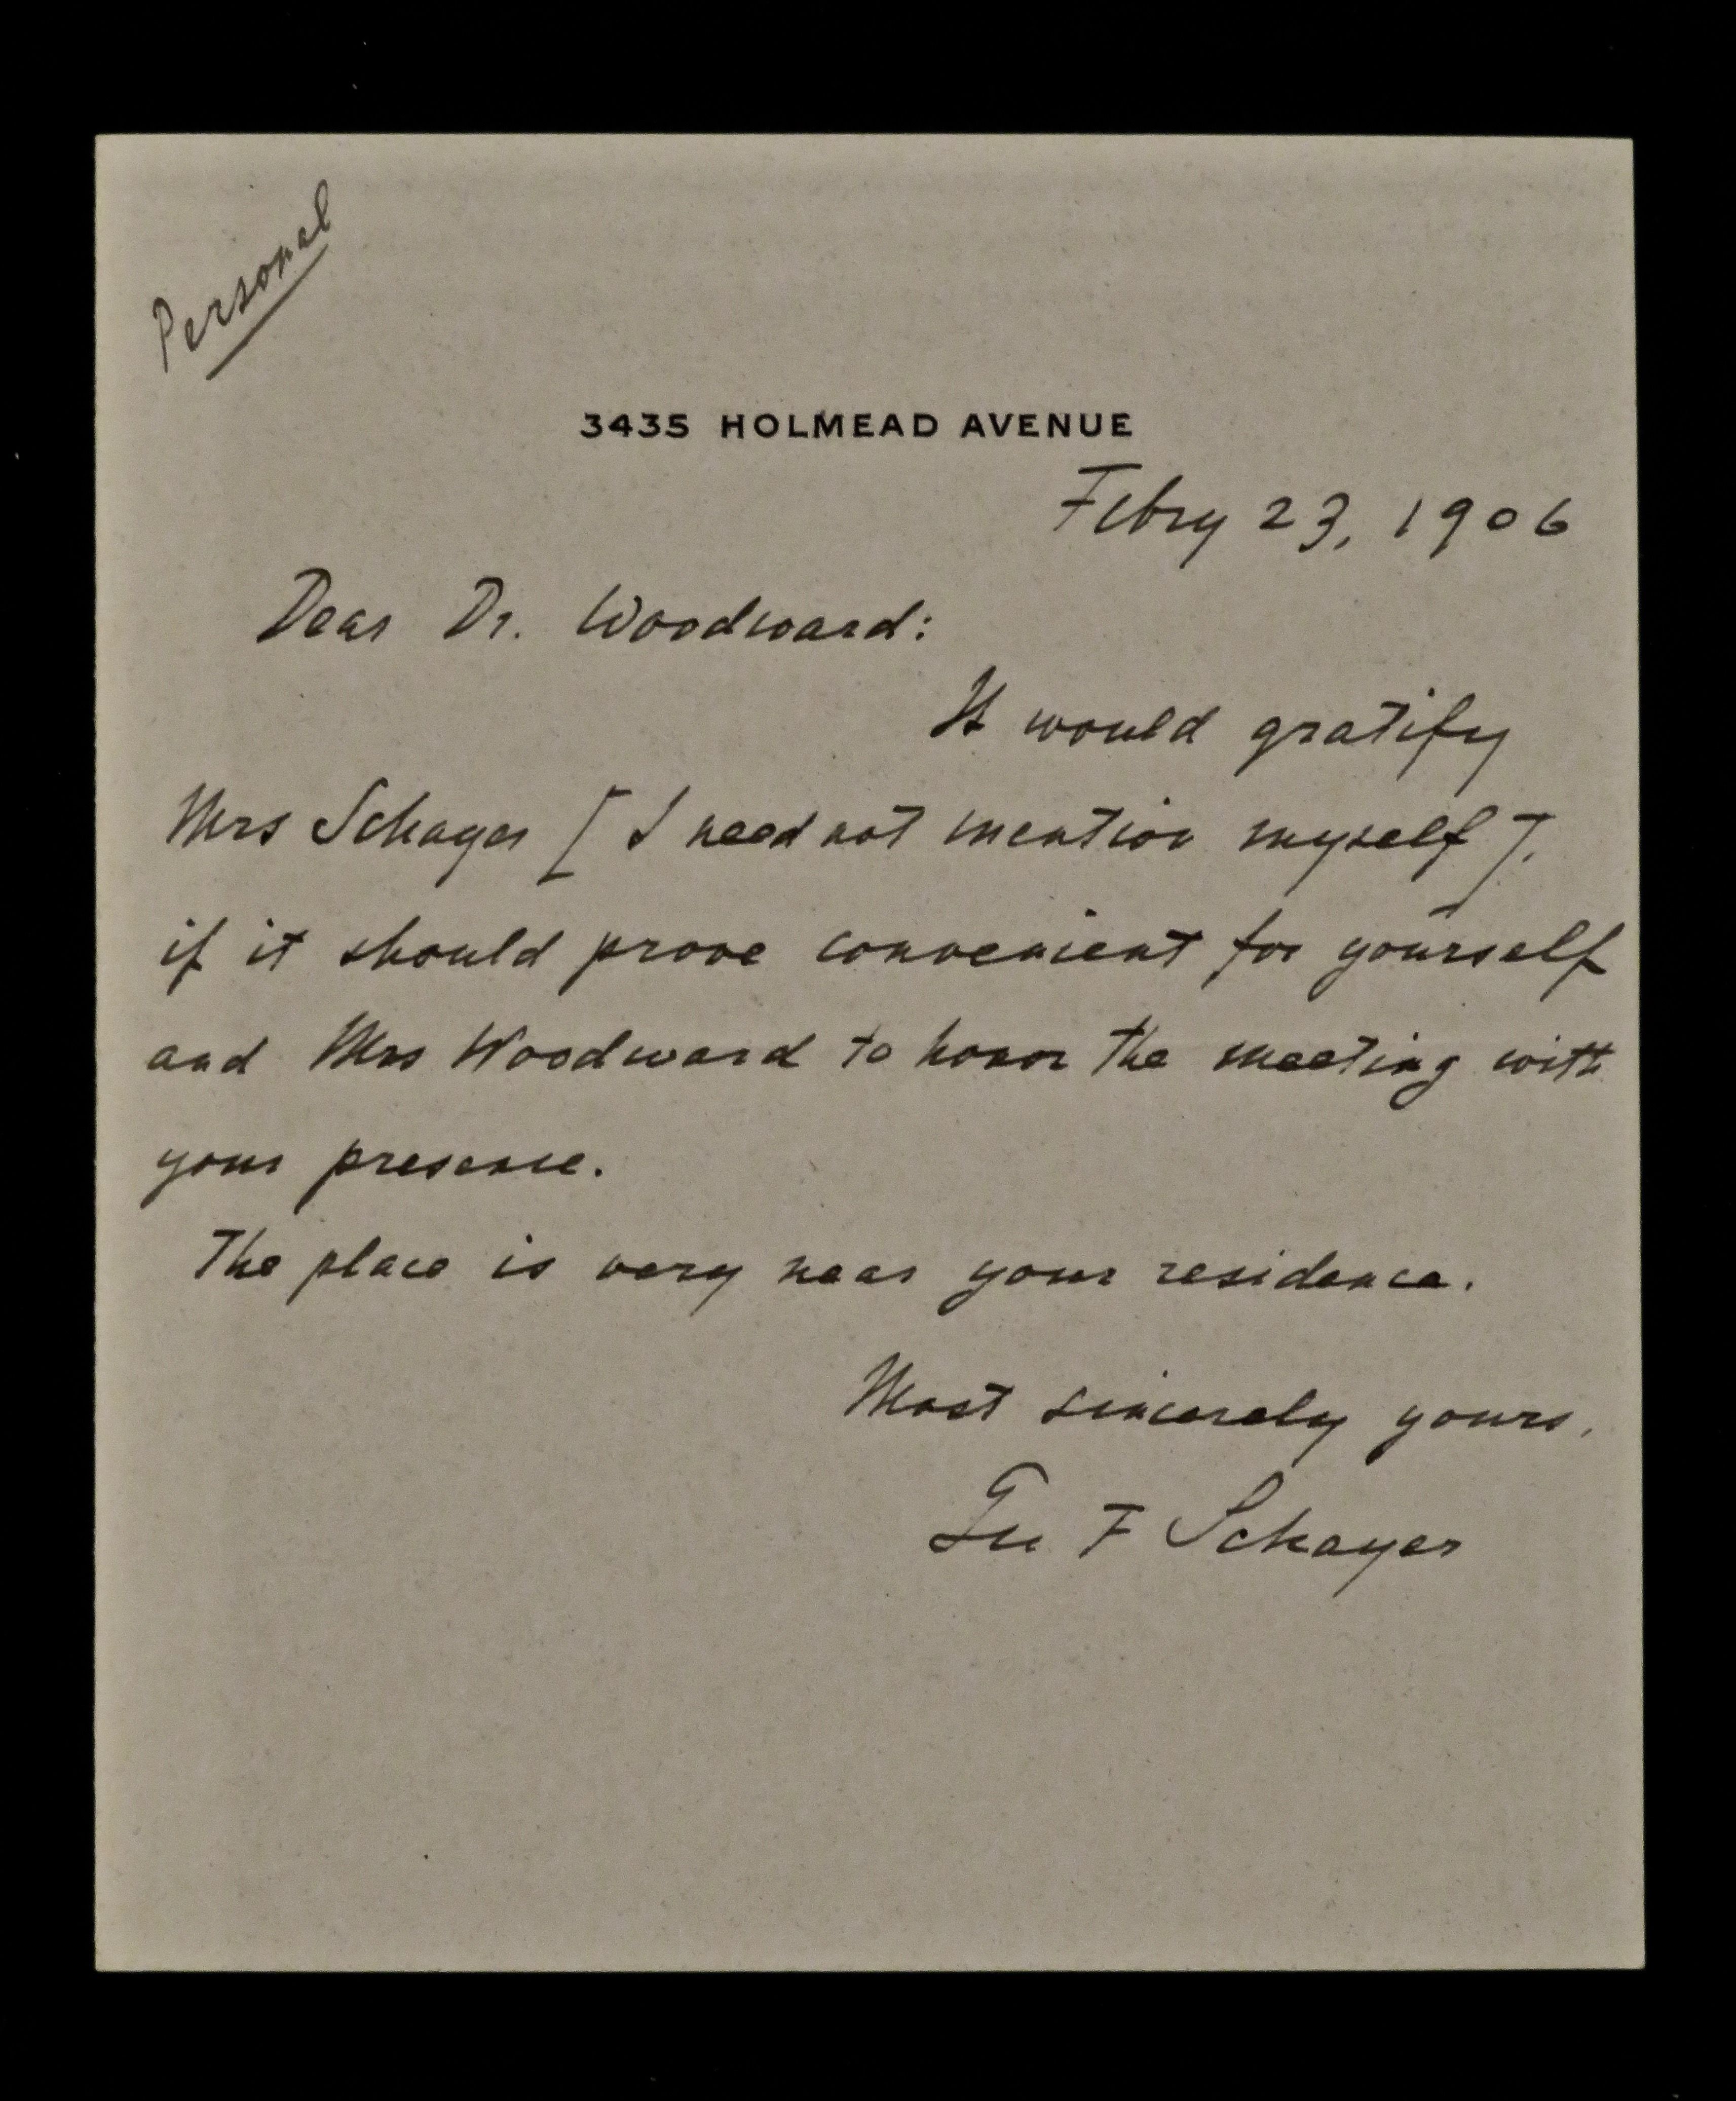 Personal
3435 HOLMEAD AVENUE
Febry 23, 1906
Dear Dr. Woodward:
It would gratify
Mrs Schayer [I need not mention myself],
if it should prove convenient for yourself
and Mrs Woodward to honor the meeting with
your presence.
The place is very near your residence.
Most sincerely yours,
F Schayer